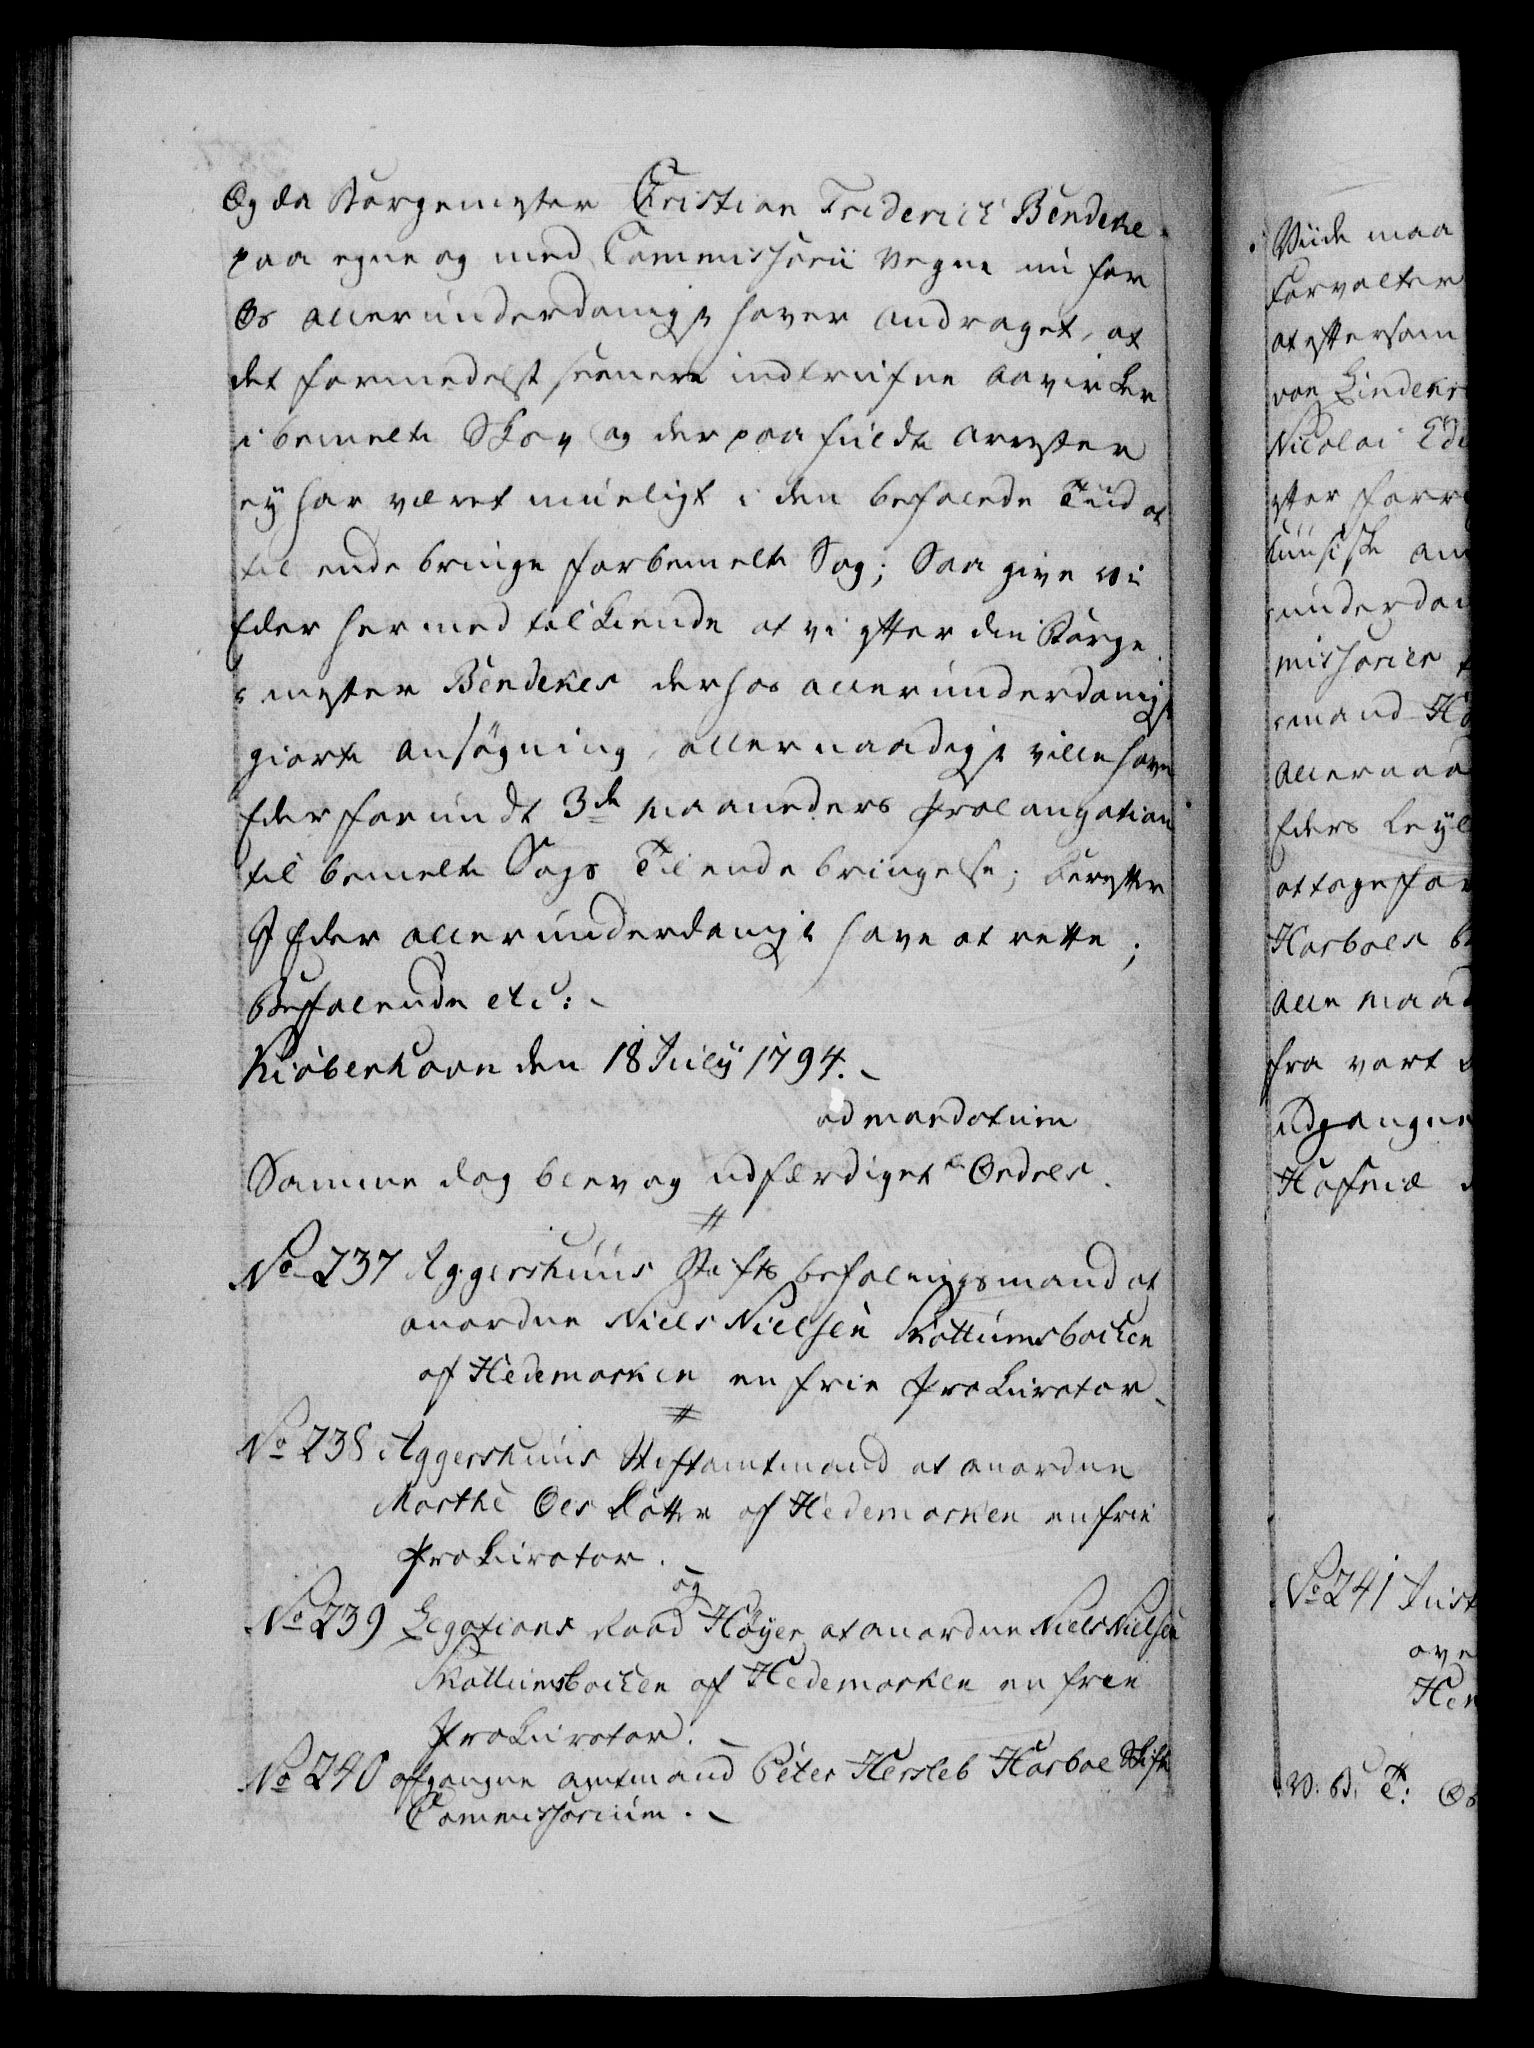 Og da Borgemester Christian Friderich Bendeke
paa egne og med Commissarii Vegne nu for
Os allerunderdanigst haver andraget, at
det formedelst seenere indtrufne
i bemelte Skov og derpaa fuldte arrester
ey har været mueligt i den befalede Tiid at
til ende bringe forbemelte Sag; Saa give vi
Eder hermed tilkiende at vi efter din Borge
mester Bendekes derhos allerunderdanigst
giorte ansøgning, allernaadigst ville have
Eder forundt 3de maaneders prolongation
til bemelte Sags Tilendebringelse; derefter
I Eder allerunderdanigst have at rette;
Befalende etc:
Kiøbenhavn den 18 July 1794.
ad mandatum
Samme dag blev og udfærdiget
No 237 Aggershuus Stiftsbefalingsmand at
anordne Niels Nielsen Skattumsbachen
af Hedemarken en frie Prokurator
No 238 Aggershuus Stiftamtmand at anordne
Marthe Oles dotter af Hedemarken en frie
Prokurator.
og
No 239 Legations Raad Høyer at anordne Niels Nielsen
Skattumsbachen af Hedemarken en frie
Prokurator.
No 240 afgangne amtmand Peter Hersleb Harboe Skifte
Commissarium.
Viide maa
Forvalter
at eftersom
von
Nicolai
efter
underdan
missarier
mand
Allernaad
Eders
at tage for
Harboes
alle maad
fra vort
udgangne
Hafniæ
No 241 Just
ove
Her
V. G. T: